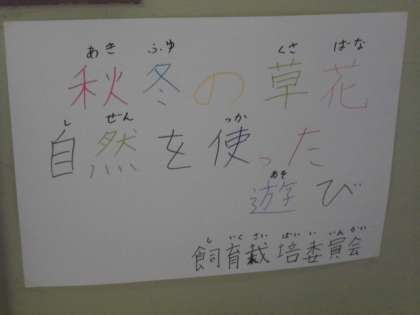 あき ふゆ くさ ばな
秋冬の草花
し ぜん つか
自然を使った
あそ
遊び
し いく さい ばい い いん かい
飼育栽培委員会